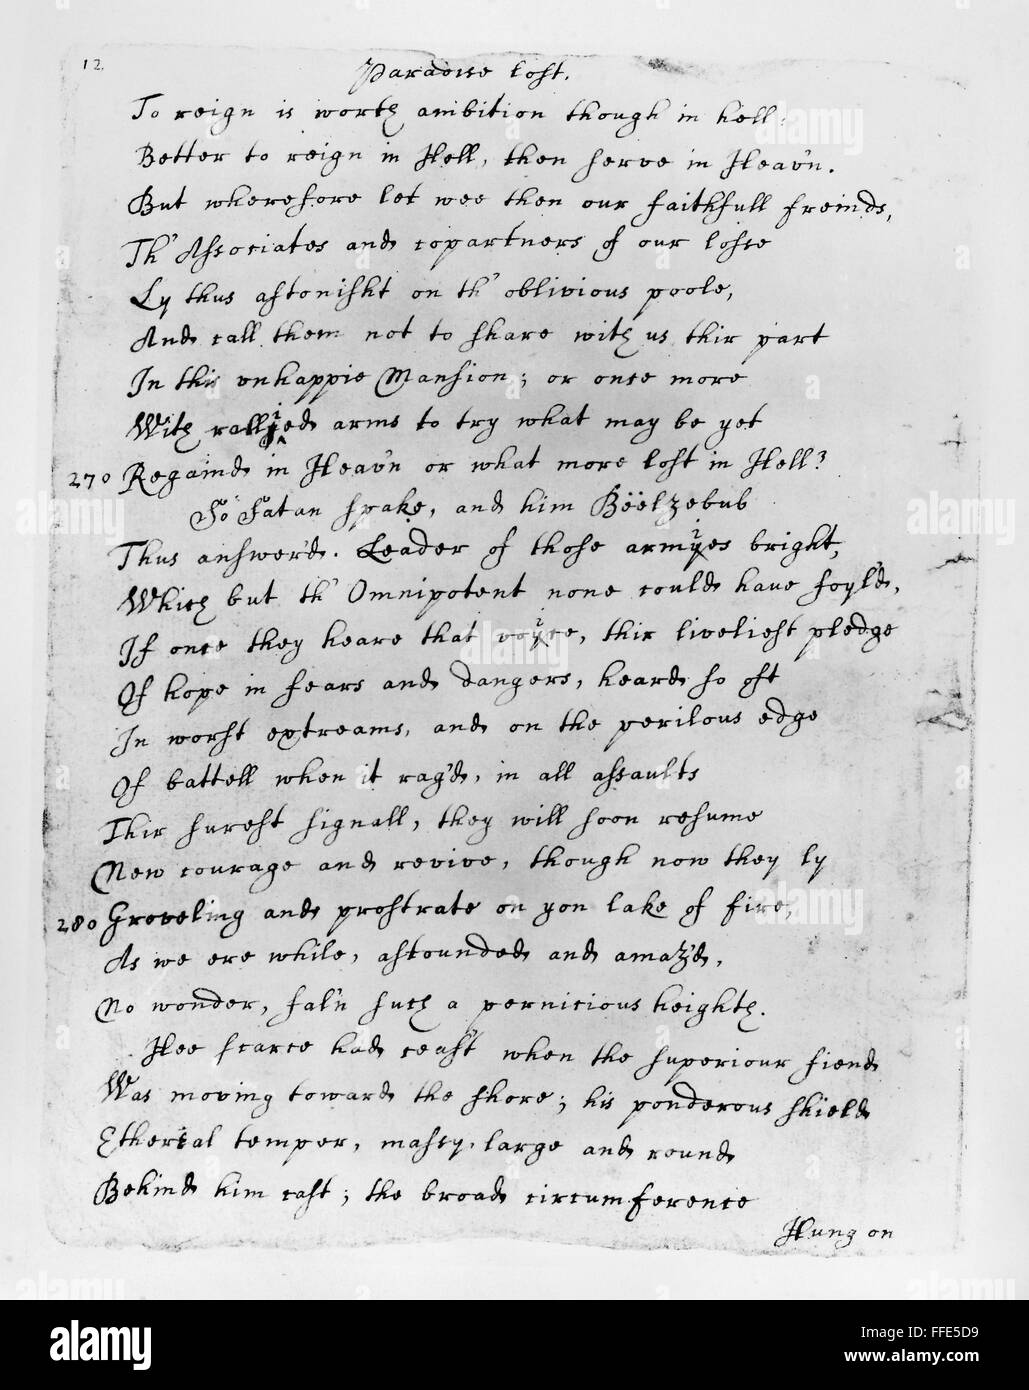 12.
Paradise lost.
To reign is worth ambition though in hell:
Better to reign in Hell, then serve in Heav'n.
But wherefore let wee then our faithfull freinds,
Th' Associates and copartners of our losse
Ly thus astonisht on th' oblivious poole,
And call them not to share with us thir part
In this vnhappie Mansion; or once more
With rallied arms to try what may be yet
270 Regaind in Heav'n or what more lost in Hell?
So Satan spake, and him Bëëlzebub
Thus answer'd. Leader of those armies bright,
Which but th' Omnipotent none could have foyl'd,
If once they heare that voice, thir liveliest pledge
Of hope in fears and dangers, heard so oft
In worst extreams, and on the perilous edge
Of battell when it rag'd, in all assaults
Thir surest signall, they will soon resume
New courage and revive, though now they ly
280 Groveling and prostrate on yon lake of fire,
As we ere while, astounded and amaz'd,
No wonder, fal'n such a pernicious heighth.
Hee scarce had ceas't when the superiour fiend
Was moving toward the shore; his ponderous shield
Ethereal temper, massy, large and round
Behind him cast; the broad circumference
Hung on
alamy
Image ID: FFE5D9
www.alamy.com